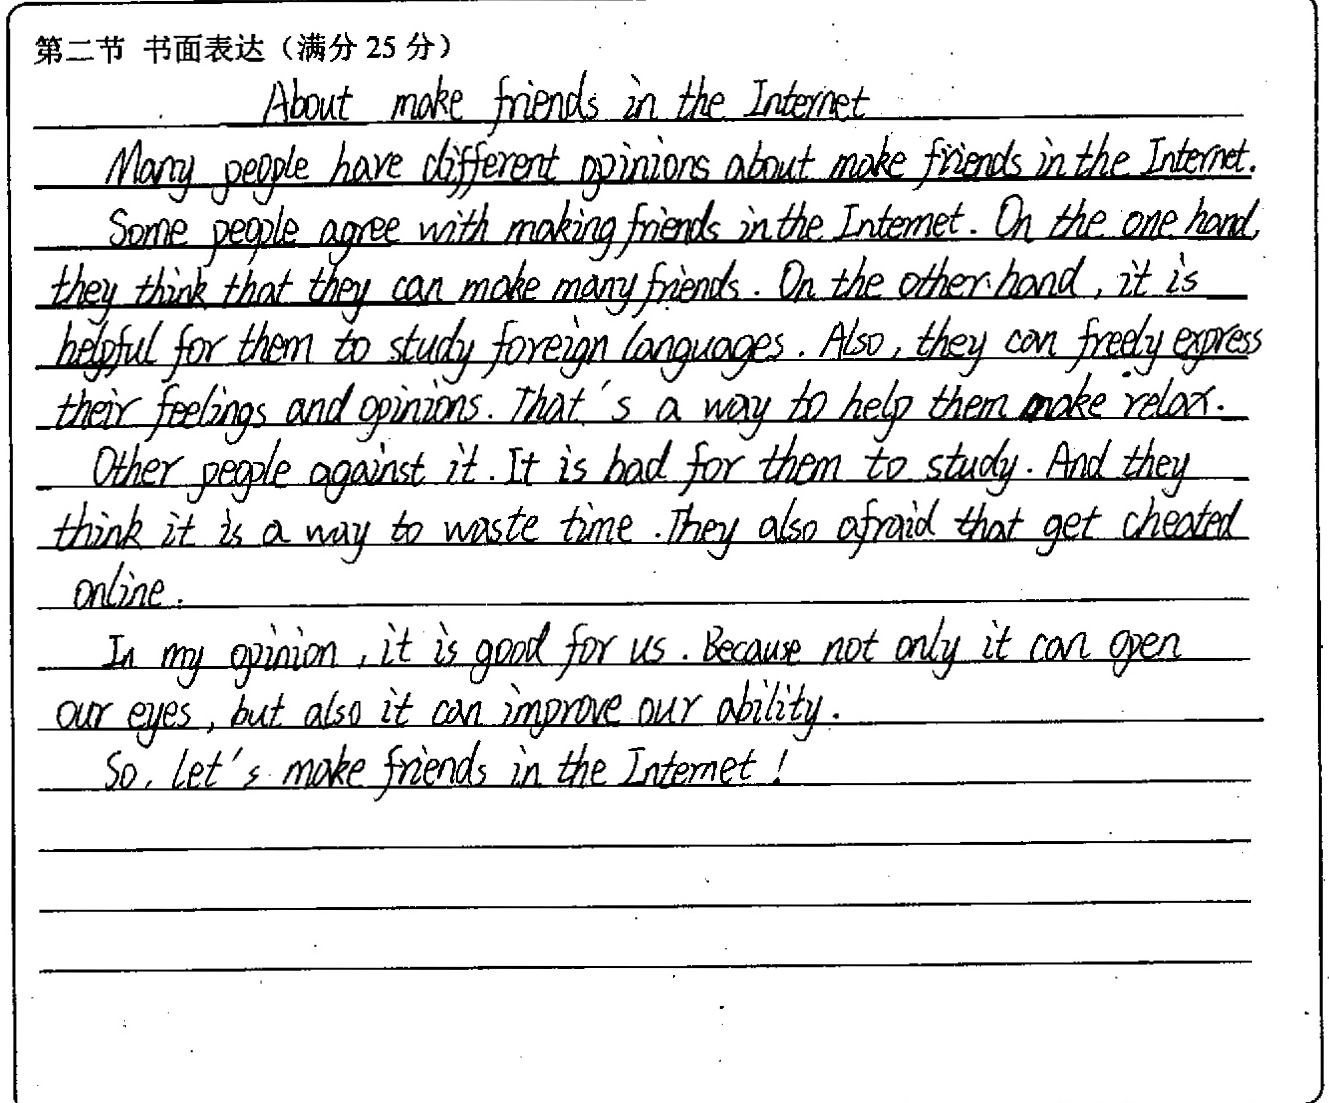 第二节 书面表达（满分 25 分）
About make friends in the Internet
Many people have different opinions about make friends in the Internet.
Some people agree with making friends in the Internet. On the one hand,
they think that they can make many friends. On the other hand, it is
helpful for them to study foreign languages. Also, they can freely express
their feelings and opinions. That's a way to help them make relax.
Other people against it. It is bad for them to study. And they
think it is a way to waste time. They also afraid that get cheated
online.
In my opinion, it is good for us. Because not only it can open
our eyes, but also it can improve our ability.
So, let's make friends in the Internet!